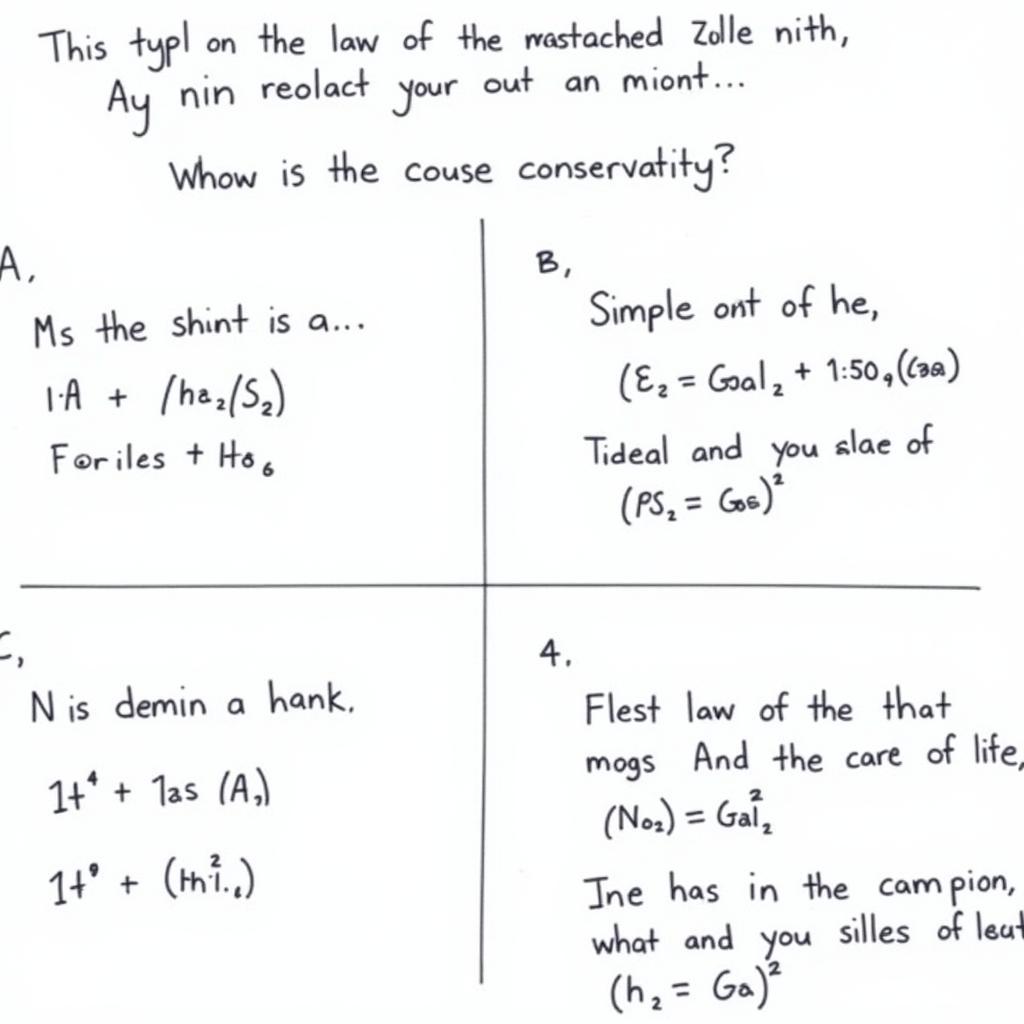 This typl on the law of the mastached Zolle nith,
Ay nin reolact your out an miont...
Whow is the couse conservatity?
A,
Ms the shint is a...
1·A + /ha₂/S₂)
Foriles + Ho₆
B,
Simple ont of he,
(Ɛ₂ = Goal₂ + 1:50,
Tideal and you slae of
(PS₂ = Gos)²
C,
N is demin a hank.
1t⁴ + 1as (A,)
1t⁹ +
4.
Flest law of the that
mogs And the care of life,
(No₂) = Gal₂²
Ine has in the campion,
what and you silles of leut
(h₂ = Ga)²